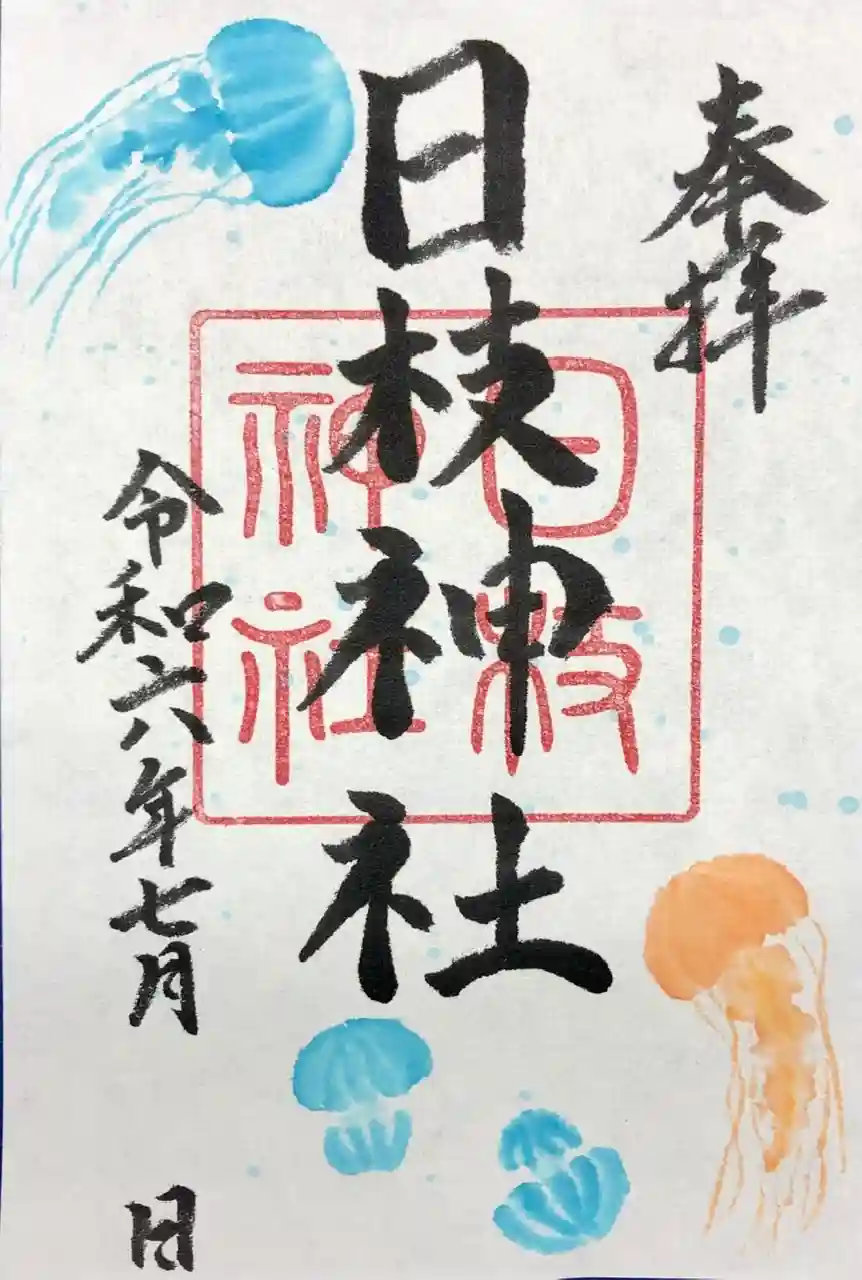 奉拝
日枝神社
日枝神社
令和六年七月 日